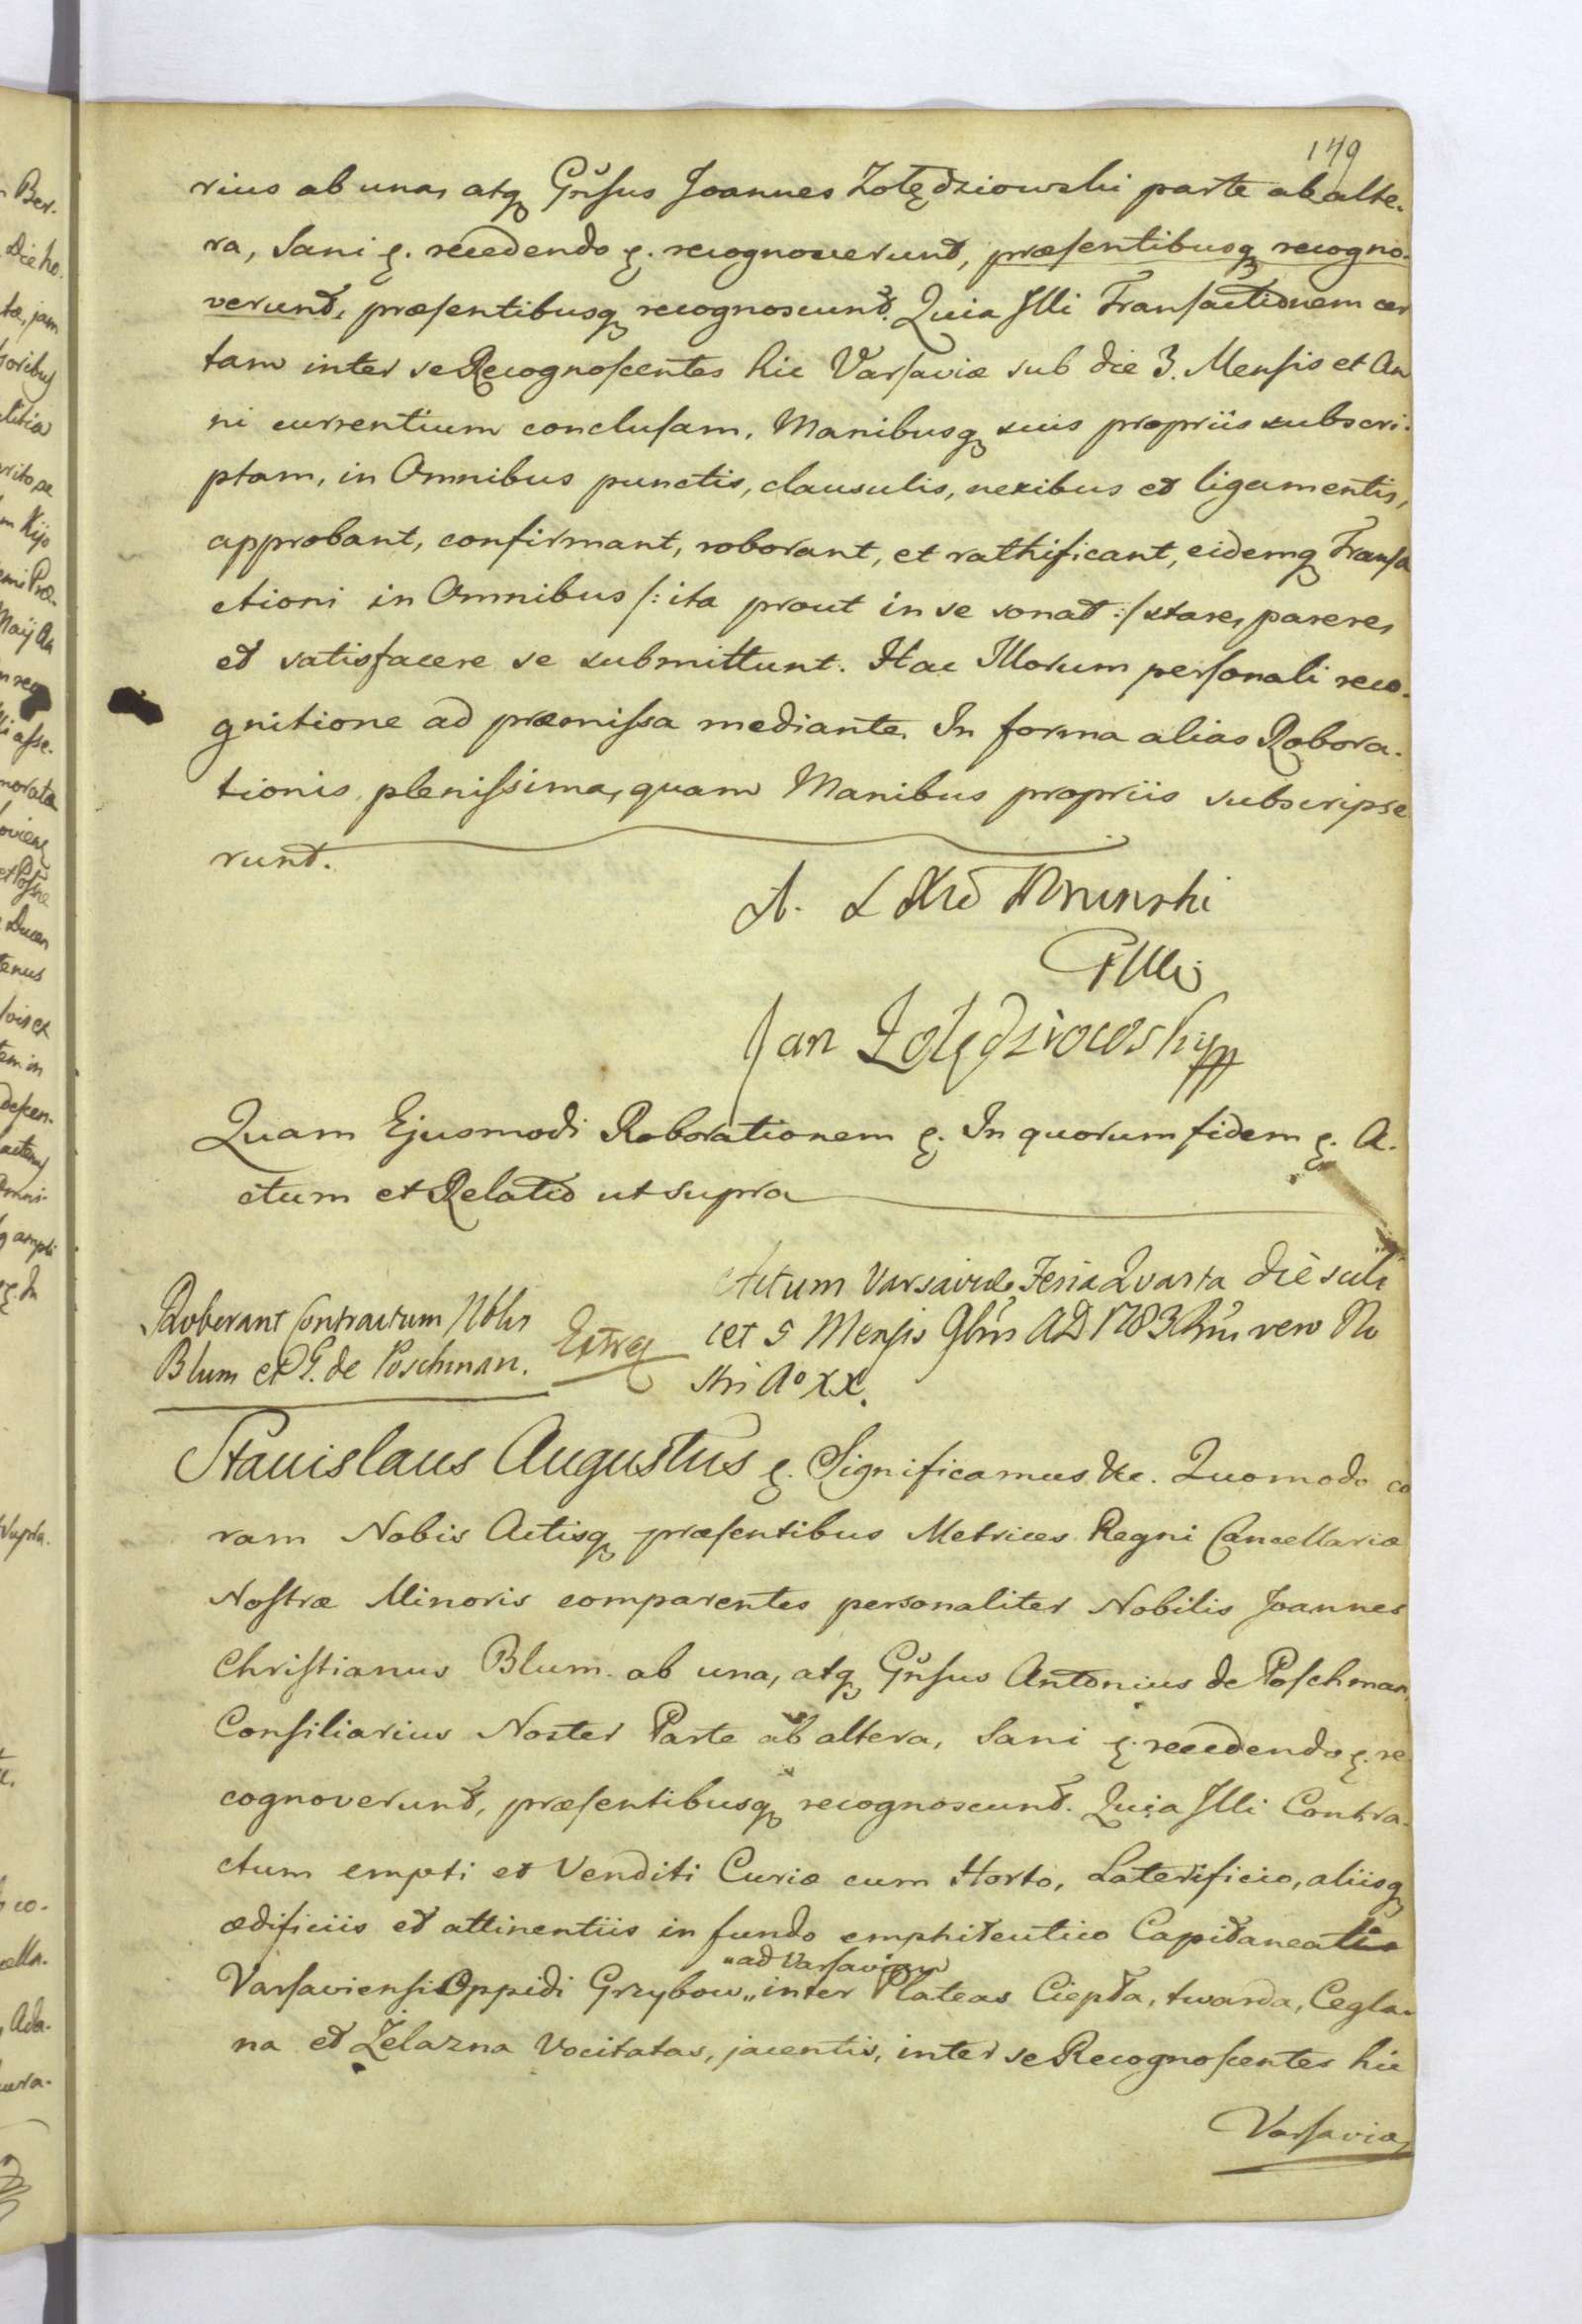 149
rius ab una, atq Gnsus Joannes Zołędziowski parte ab alte-
ra, Sani &. recedendo &. recognoverunt, præsentibusq recogno-
verunt, præsentibusq recognoscunt. Quia Illi Transactionem cer
tam inter se Recognoscentes hic Varsaviæ sub die 3. Mensis et An
ni currentium conclusam, Manibusq suis propriis subscri-
ptam, in Omnibus punctis, clausulis, nexibus et ligamentis,
approbant, confirmant, roborant, et rathificant, eidemq Transa
ctioni in Omnibus /: ita prout in se sonat :/ stare, parere,
et satisfacere se submittunt. Hac Illorum personali reco-
gnitione ad præmissa mediante. In forma alias Robora-
tionis plenissima, quam Manibus propriis subscripse
runt.
A.
Jan Zołędziowski
Quam Ejusmodi Roborationem &. In quorum fidem &. A-
ctum et Relatio ut supra
Actum Varsaviæ Feria Quarta die scili
cet 5 Mensis 9bris AD 1783 Rni vero No
stri A° XX.
Roborant Contractum Nblis
Blum et G. de Poschman.
Extrq
Stanislaus Augustus &. Significamus &c. Quomodo co
ram Nobis Actisq præsentibus Metrices Regni Cancellariæ
Nostræ Minoris comparentes personaliter Nobilis Joannes
Christianus Blum ab una, atq Gnsus Antonius de Poschman
Consiliarius Noster Parte ab altera, Sani &. recedendo &. re
cognoverunt, præsentibusq recognoscunt. Quia Illi Contra-
ctum empti et Venditi Curiæ cum Horto, Laterificio, aliisq
ædificiis et attinentiis in fundo emphiteutico Capitaneatis
"ad Varsaviam
Varsaviensi Oppidi Grzybow " inter Plateas Ciepła, twarda, Cegla-
na et Żelazna Vocitatas, jacentis, inter se Recognoscentes hic
Varsaviæ